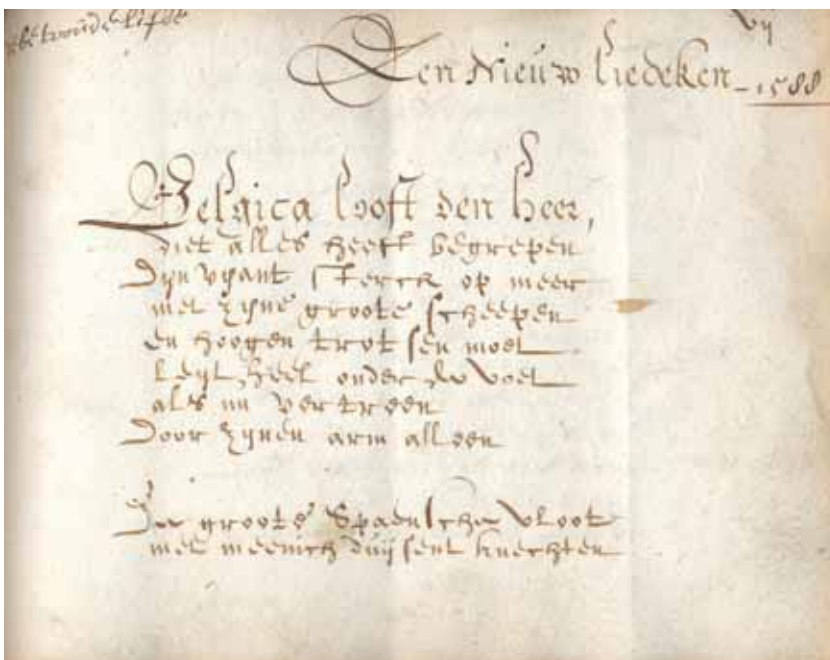 Een Nieuw liedeken - 1588
Belgica looft den heer,
diet alles heeft begrepen
Dijn vyant sterck op meer
met zijne groote scheepen
en hoogen trotsen moet
leyt heel onder de voet
als nu vertreen
Door zijnen arm alleen
De groote Spaensche vloot
met menich duijsent knechten